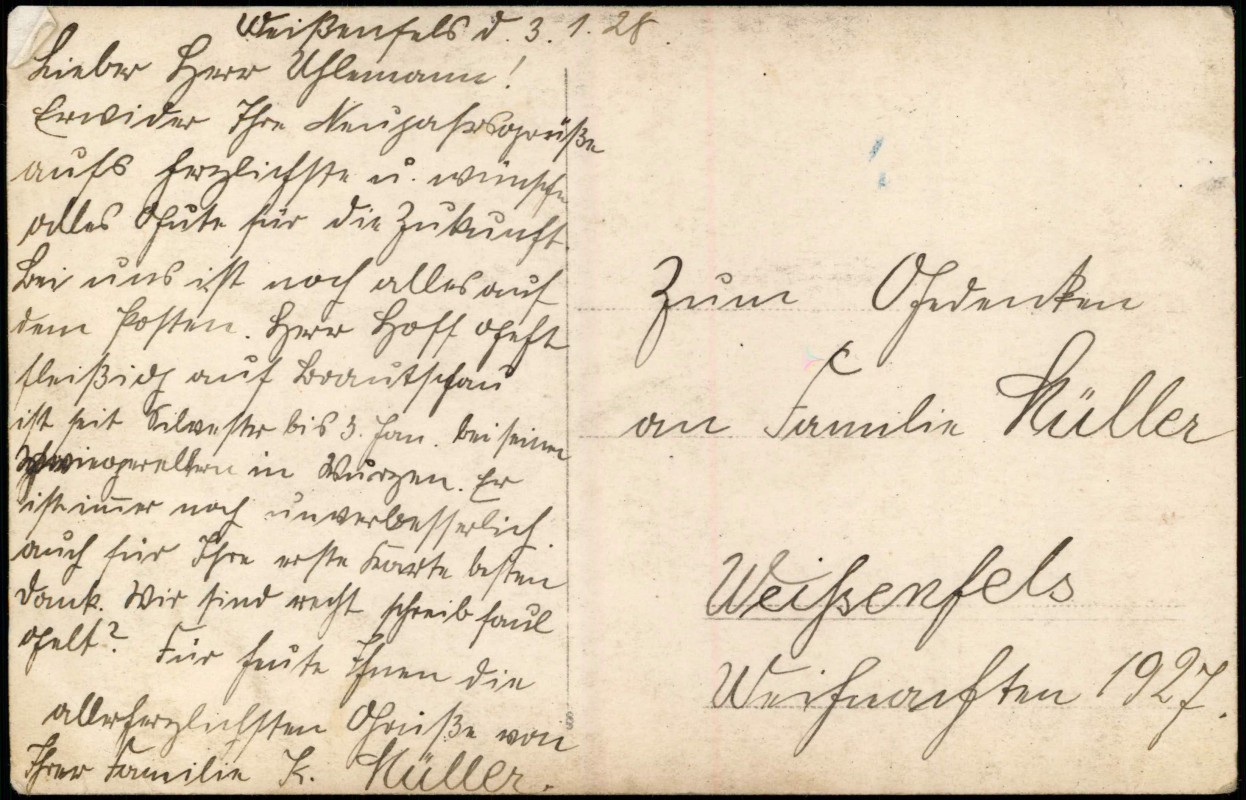 Weißenfels d. 3. 1. 28.
Lieber Herr Uhlemann!
Erwider Ihre Neujahrsgrüße
aufs herzlichste u. wünsche
alles Gute für die Zukunft.
Bei uns ist noch alles auf
dem Posten. Herr Hoff geht
fleißig auf Brautschau
ist seit Silvester bis 3. Jan. bei seinen
Schwiegereltern in Wurzen. Er
ist immer noch unverbesserlich.
auch für Ihre erste Karte besten
Dank. Wir sind recht schreibfaul
gelt? Für heute Ihnen die
allerherzlichsten Grüße von
Ihrer Familie K. Müller.
Zum Gedenken
an Familie Müller
Weißenfels
Weihnachten 1927.